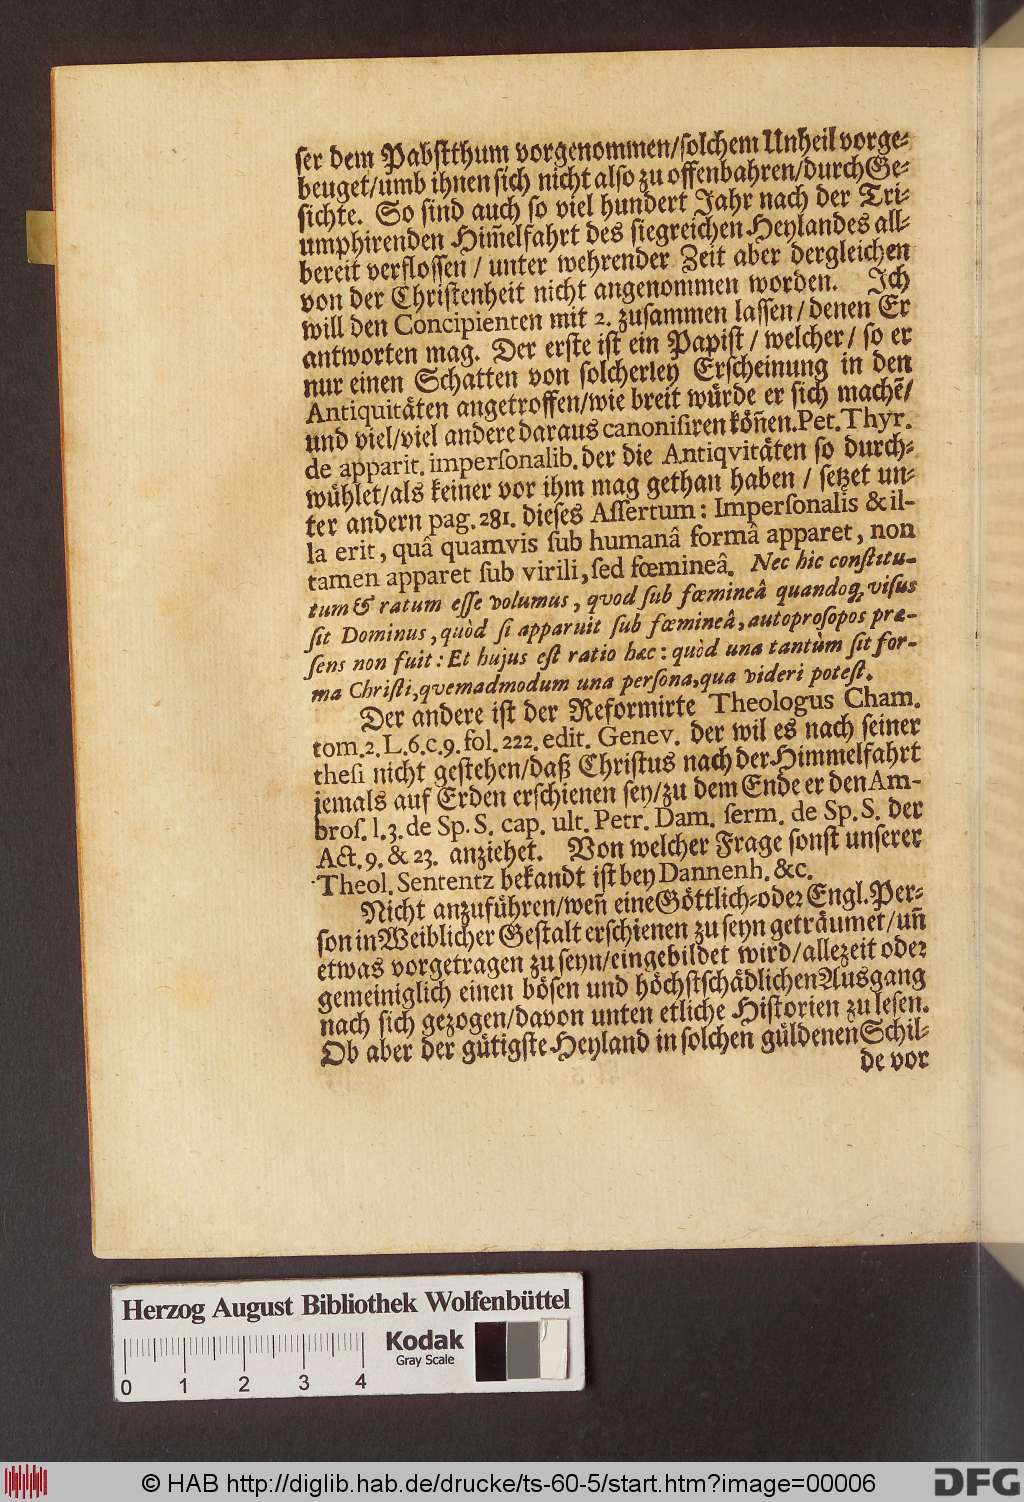 ser dem Pabstthum vorgenommen/solchem Unheil vorge-
beuget/umb ihnen sich nicht also zu offenbahren/durch Ge-
sichte. So sind auch so viel hundert Jahr nach der Tri-
umphirenden Him̃elfahrt des siegreichen Heylandes all-
bereit verflossen / unter wehrender Zeit aber dergleichen
von der Christenheit nicht angenommen worden. Ich
will den Concipienten mit 2. zusammen lassen/denen Er
antworten mag. Der erste ist ein Papist / welcher/ so er
nur einen Schatten von solcherley Erscheinung in den
Antiquitäten angetroffen/wie breit würde er sich machẽ/
und viel/viel andere daraus canonisiren kön̄en. Pet. Thyr.
de apparit. impersonalib. der die Antiqvitäten so durch-
wühlet/als keiner vor ihm mag gethan haben / setzet un-
ter andern pag. 281. dieses Assertum: Impersonalis & il-
la erit, quâ quamvis sub humanâ formâ apparet, non
tamen apparet sub virili, sed fœmineâ. Nec hic constitu-
tum & ratum esse volumus, qvod sub fœmineâ quandoq; visus
sit Dominus, quòd si apparuit sub fœmineâ, autoprosopos præ-
sens non fuit: Et hujus est ratio hæc: quòd una tantùm sit for-
ma Christi, qvemadmodum una persona, qua videri potest.
Der andere ist der Reformirte Theologus Cham.
tom. 2. L. 6. c. 9. fol. 222. edit. Genev. der wil es nach seiner
thesi nicht gestehen/daß Christus nach der Himmelfahrt
jemals auf Erden erschienen sey/zu dem Ende er den Am-
bros. l. 3. de Sp. S. cap. ult. Petr. Dam. serm. de Sp. S. der
Act. 9. & 23. anziehet. Von welcher Frage sonst unserer
Theol. Sententz bekandt ist bey Dannenh. &c.
Nicht anzuführen/wen̄ eine Göttlich-oder Engl. Per-
son in Weiblicher Gestalt erschienen zu seyn geträumet/un̄
etwas vorgetragen zu seyn/eingebildet wird/allezeit oder
gemeiniglich einen bösen und höchstschädlichen Ausgang
nach sich gezogen/davon unten etliche Historien zu lesen.
Ob aber der gütigste Heyland in solchen güldenen Schil-
de vor
Herzog August Bibliothek Wolfenbüttel
Kodak
Gray Scale
0 1 2 3 4
© HAB http://diglib.hab.de/drucke/ts-60-5/start.htm?image=00006
DFG